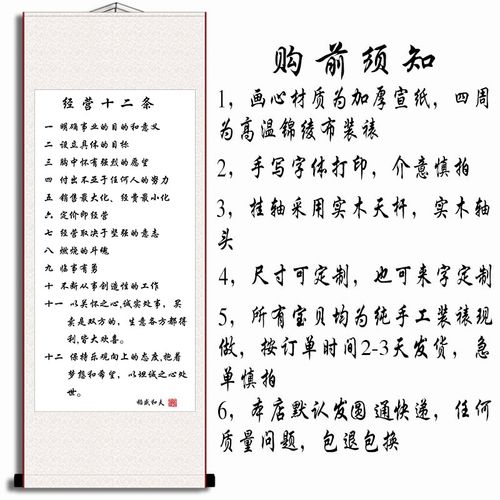 经营十二条
一 明确事业的目的和意义
二 设立具体的目标
三 胸中怀有强烈的愿望
四 付出不亚于任何人的努力
五 销售最大化、经费最小化
六 定价即经营
七 经营取决于坚强的意志
八 燃烧的斗魂
九 临事有勇
十 不断从事创造性的工作
十一 以关怀之心,诚实处事，买
卖是双方的，生意各方都得
利,皆大欢喜。
十二 保持乐观向上的态度,抱着
梦想和希望，以坦诚之心处
世。
稻盛和夫
购前须知
1，画心材质为加厚宣纸，四周
为高温锦绫布装裱
2，手写字体打印，介意慎拍
3，挂轴采用实木天杆，实木轴
头
4，尺寸可定制，也可来字定制
5，所有宝贝均为纯手工装裱现
做，按订单时间2-3天发货，急
单慎拍
6，本店默认发圆通快递，任何
质量问题，包退包换